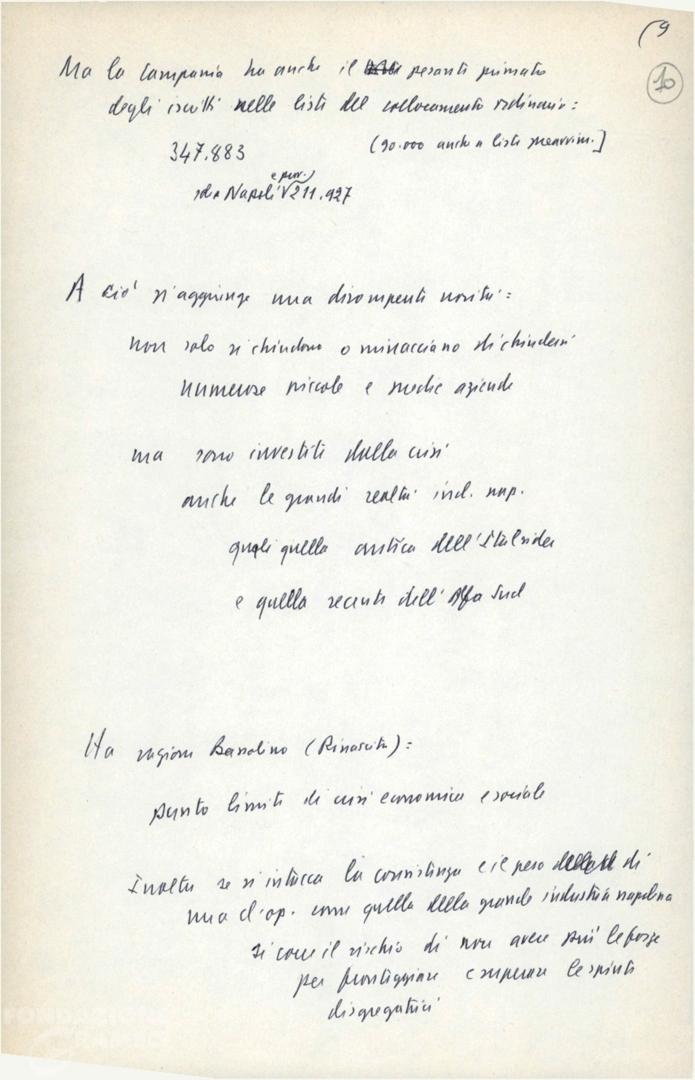 (9
10
Ma la Campania ha anche il pesante primato
degli iscritti nelle liste del collocamento ordinario:
347.883 (90.000 anche a liste preavviam.]
solo Napoli e prov.) 211.927
A ciò si aggiunge una dirompente novità:
non solo si chiudono o minacciano di chiudersi
numerose piccole e medie aziende
ma sono investite dalla crisi
anche le grandi realtà ind. nap.
quali quella antica dell'Italsider
e quella recente dell'Alfa Sud
Ha ragione Bassolino (Rinascita):
punto limite di crisi economica e sociale
Inoltre se si intacca la consistenza e il peso di
una cl. op. come quella della grande industria napoletana
si corre il rischio di non avere più le forze
per fronteggiare e superare le spinte
disgregatrici
FONDAZIONE
GRAMSCI